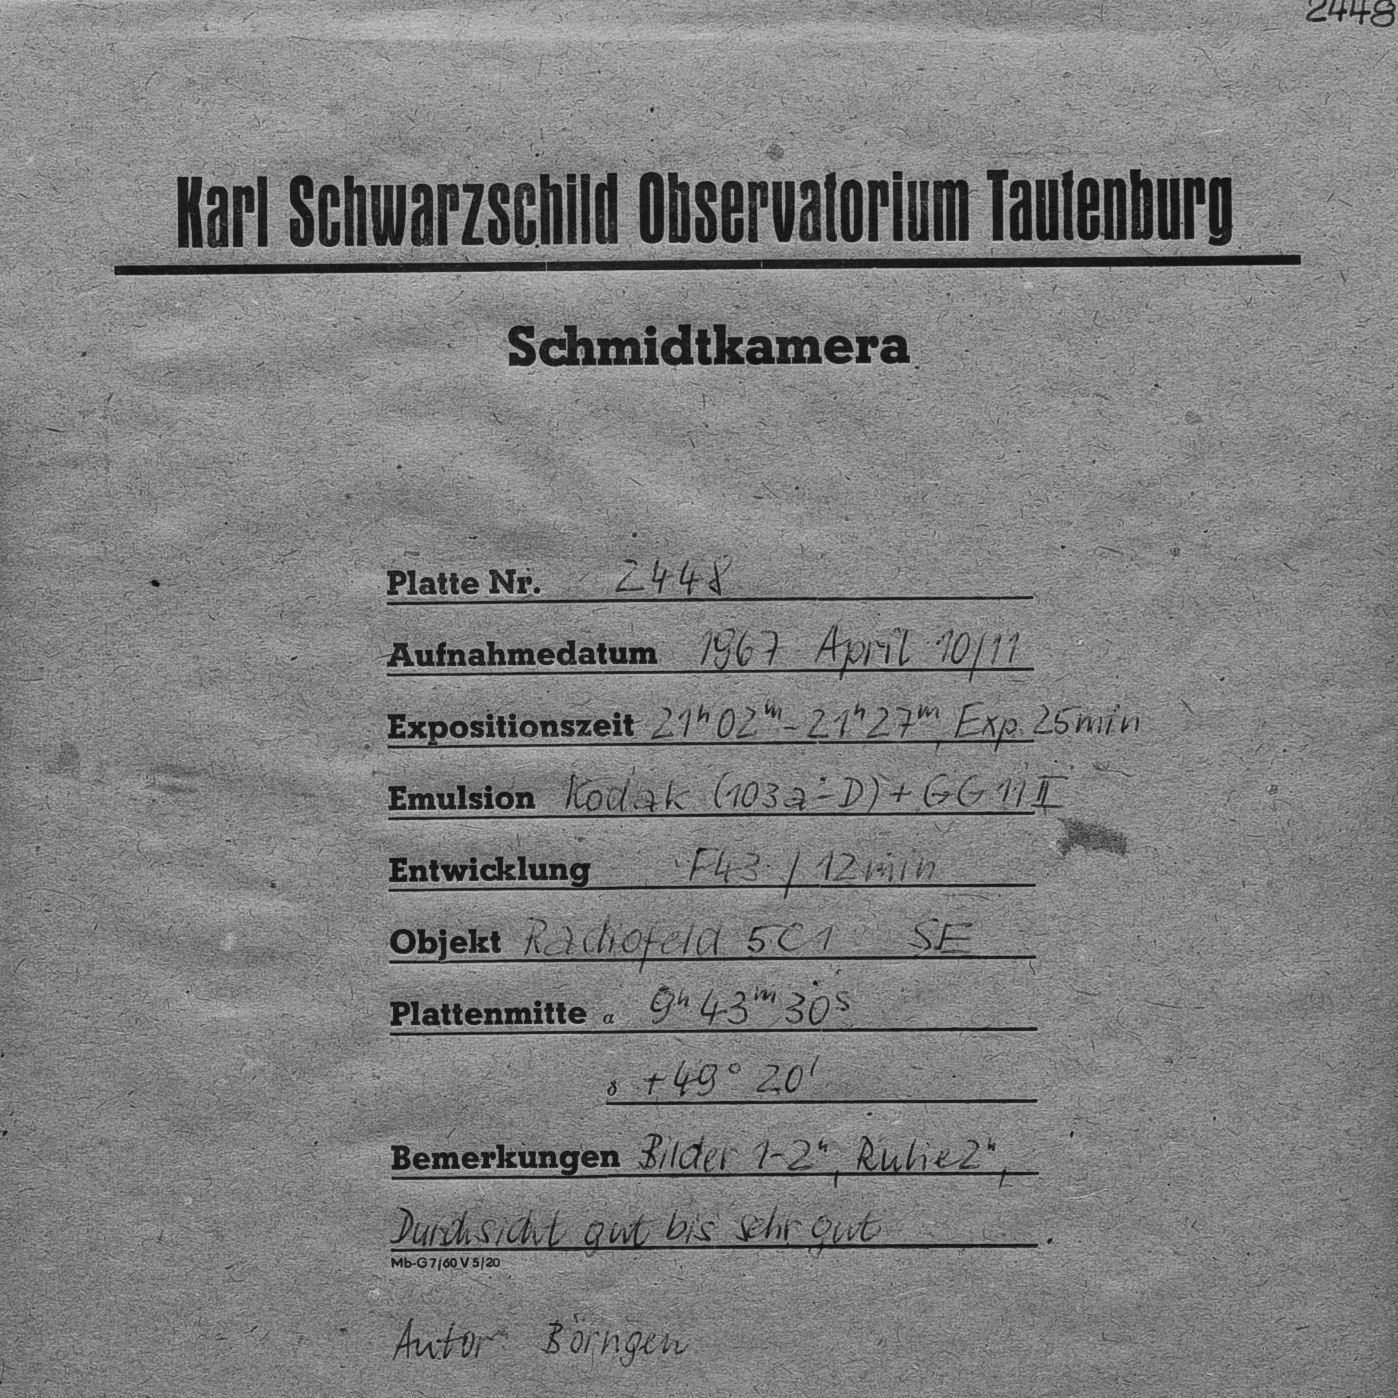 2448
Karl Schwarzschild Observatorium Tautenburg
Schmidtkamera
Platte Nr. 2448
Aufnahmedatum 1967 April 10/11
Expositionszeit 21ʰ02ᵐ-21ʰ27ᵐ, Exp. 25min
Emulsion Kodak (103a-D)+GG11 II
Entwicklung F43 / 12min
Objekt Radiofeld 5C1 SE
Plattenmitte α 9ʰ43ᵐ30ˢ
δ +49° 20'
Bemerkungen Bilder 1-2", Ruhe 2",
Durchsicht gut bis sehr gut.
Mb-G 7/60 V 5/20
Autor Börngen